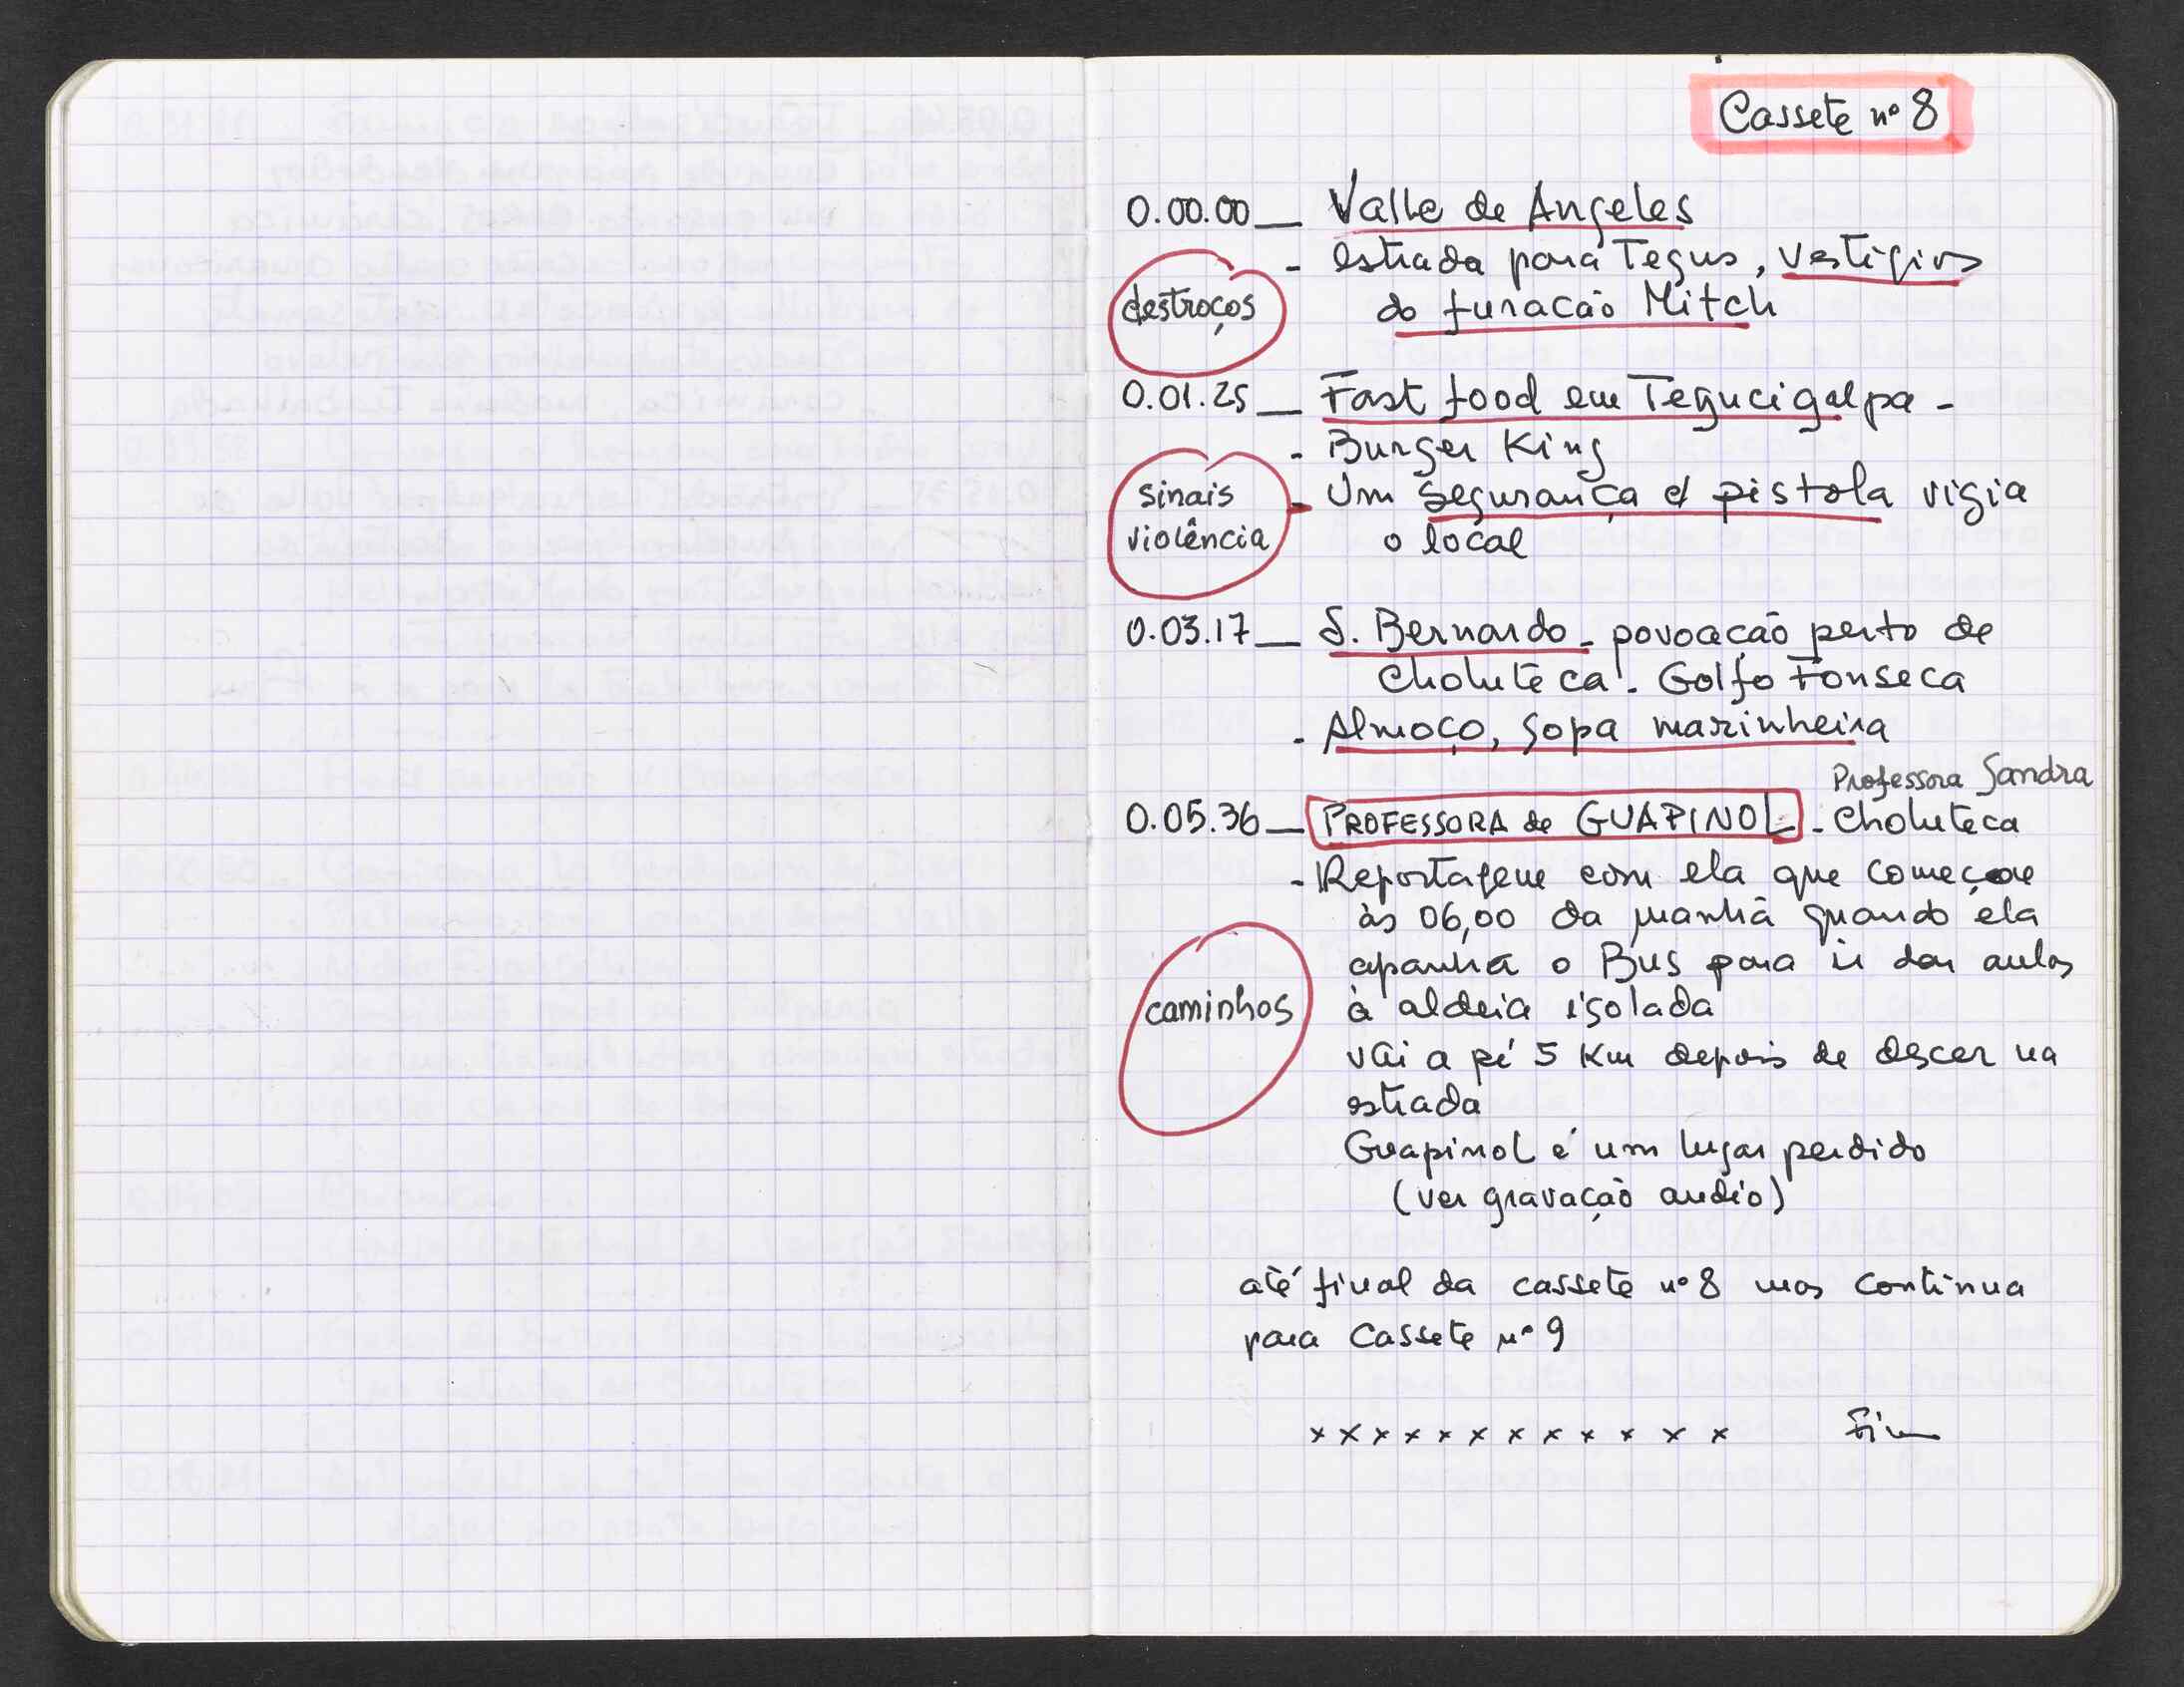 Cassete nº 8
0.00.00 — Valle de Angeles
- estrada para Tegus, vestígios
destroços
do furacão Mitch
0.01.25 — Fast food em Tegucigalpa -
- Burger King
sinais
violência
- Um segurança c/ pistola vigia
o local
0.03.17 — S. Bernardo - povoação perto de
Choluteca. Golfo Fonseca
- Almoço, sopa marinheira
Professora Sandra
0.05.36 — PROFESSORA de GUAPINOL - Choluteca
- Reportagem com ela que começa
às 06,00 da manhã quando ela
apanha o Bus para ir dar aulas
caminhos
à aldeia isolada
vai a pé 5 Km depois de descer na
estrada
Guapinol é um lugar perdido
(ver gravação audio)
até final da cassete nº 8 mas continua
para Cassete nº 9
x x x x x x x x x x x x Fim